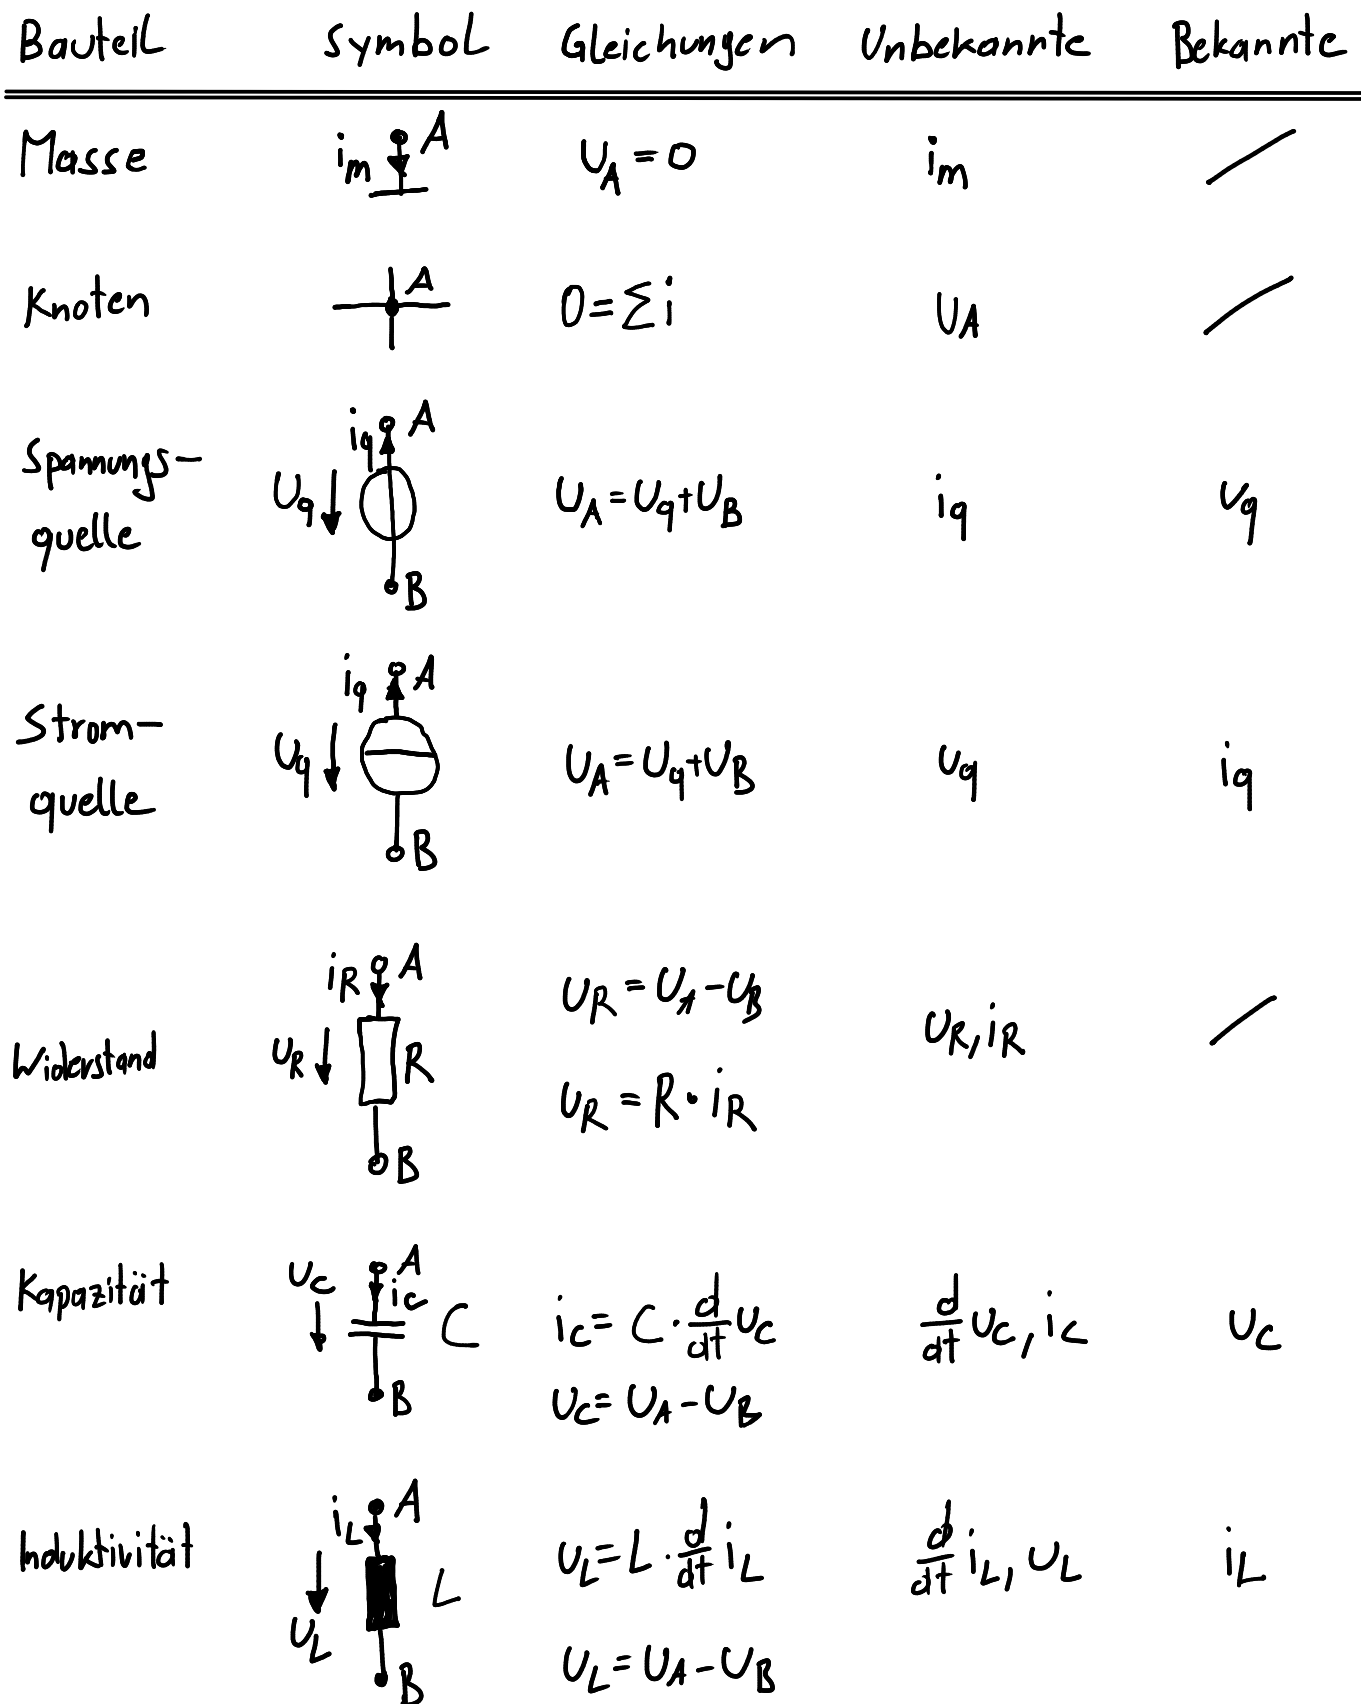 Bauteil Symbol Gleichungen Unbekannte Bekannte
Masse i_m A U_A = 0 i_m /
Knoten A 0 = Σ i U_A /
Spannungs-
quelle i_q A U_q B U_A = U_q + U_B i_q U_q
Strom-
quelle i_q A U_q B U_A = U_q + U_B U_q i_q
Widerstand i_R A U_R R B U_R = U_A - U_B U_R, i_R /
U_R = R · i_R
Kapazität U_C A i_C C B i_C = C · d/dt U_C d/dt U_C, i_C U_C
U_C = U_A - U_B
Induktivität i_L A U_L L B U_L = L · d/dt i_L d/dt i_L, U_L i_L
U_L = U_A - U_B